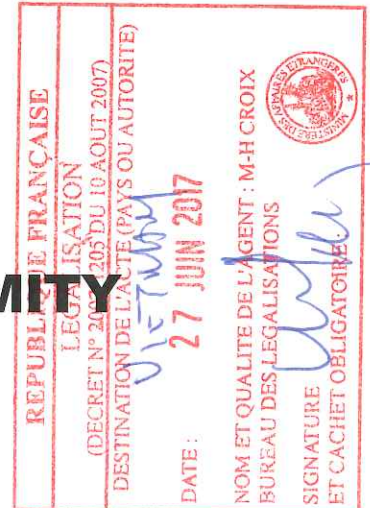 REPUBLIQUE FRANÇAISE
LEGALISATION
(DECRET N° 2007-1205 DU 10 AOUT 2007)
DESTINATION DE L'ACTE (PAYS OU AUTORITE)
DATE : 27 JUIN 2017
NOM ET QUALITE DE L'AGENT : M-H CROIX
BUREAU DES LEGALISATIONS
SIGNATURE
ET CACHET OBLIGATOIRE
MINISTERE DES AFFAIRES ETRANGERES
MITY